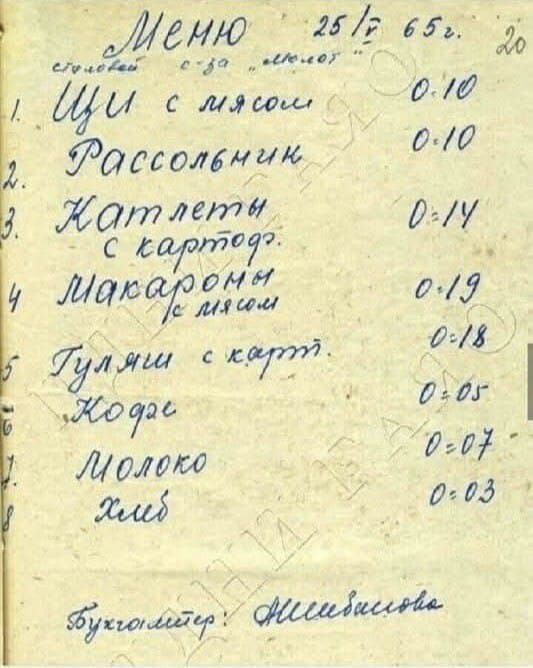 Меню 25/V 65 г. 20
столовой с-за „Молот"
1. Щи с мясом 0=10
2. Рассольник 0=10
3. Катлеты 0=14
с картоф.
4 Макароны 0=19
с мясом
5 Гуляш с карт. 0=18
6 Кофе 0=05
7. Молоко 0=07
8 Хлеб 0=03
Бухгалтер: